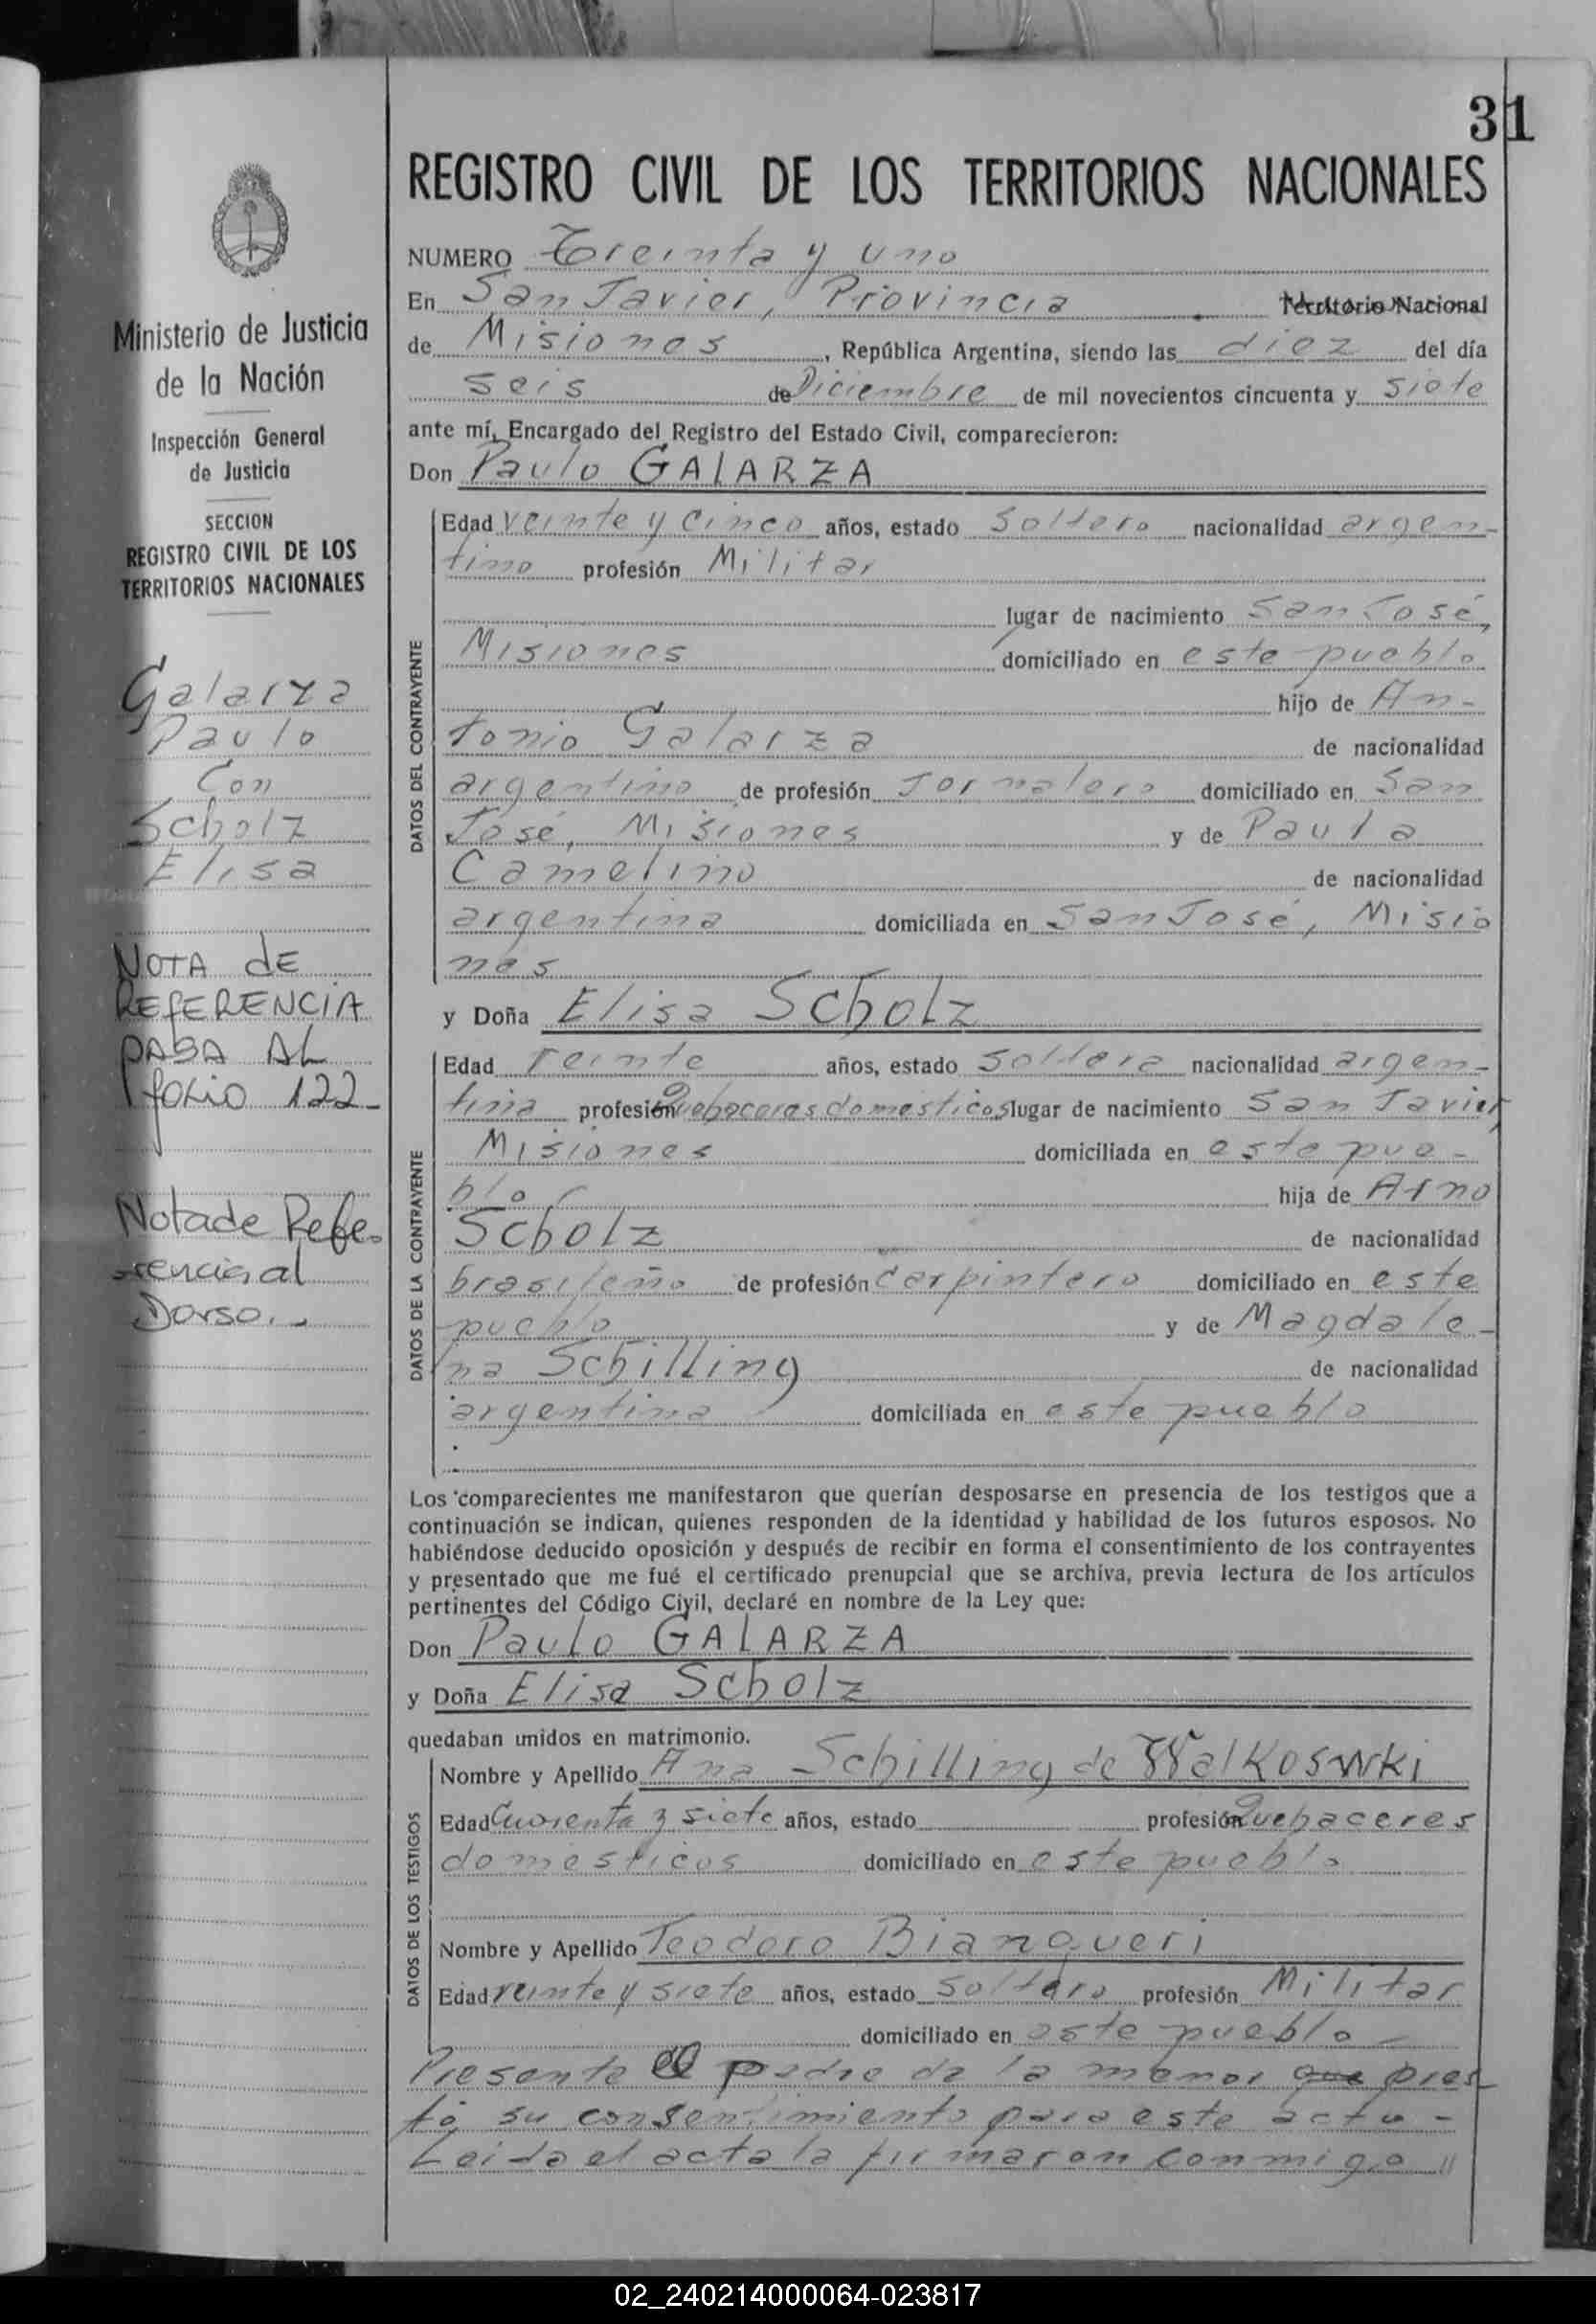 31
REGISTRO CIVIL DE LOS TERRITORIOS NACIONALES
NUMERO Treinta y uno
En San Javier, Provincia Territorio Nacional
de Misiones, República Argentina, siendo las diez del día
seis de Diciembre de mil novecientos cincuenta y siete
ante mí, Encargado del Registro del Estado Civil, comparecieron:
Don Paulo GALARZA
DATOS DEL CONTRAYENTE
Edad veinte y cinco años, estado Soltero nacionalidad argen-
tino profesión Militar
lugar de nacimiento San José,
Misiones domiciliado en este pueblo
hijo de An-
tonio Galarza de nacionalidad
argentino de profesión Jornalero domiciliado en San
José, Misiones y de Paula
Camelino de nacionalidad
argentina domiciliada en San José, Misio
nes
y Doña Elisa Scholz
DATOS DE LA CONTRAYENTE
Edad veinte años, estado Soltera nacionalidad argen-
tina profesión Quehaceres domesticos lugar de nacimiento San Javier,
Misiones domiciliada en este pue-
blo hija de Arno
Scholz de nacionalidad
brasileño de profesión Carpintero domiciliado en este
pueblo y de Magdale-
na Schilling de nacionalidad
argentina domiciliada en este pueblo
Los comparecientes me manifestaron que querían desposarse en presencia de los testigos que a
continuación se indican, quienes responden de la identidad y habilidad de los futuros esposos. No
habiéndose deducido oposición y después de recibir en forma el consentimiento de los contrayentes
y presentado que me fué el certificado prenupcial que se archiva, previa lectura de los artículos
pertinentes del Código Civil, declaré en nombre de la Ley que:
Don Paulo GALARZA
y Doña Elisa Scholz
quedaban unidos en matrimonio.
DATOS DE LOS TESTIGOS
Nombre y Apellido Ana Schilling de Walkoswki
Edad Cuarenta y siete años, estado profesión Quehaceres
domesticos domiciliado en este pueblo
Nombre y Apellido Teodoro Bianqueri
Edad veinte y siete años, estado Soltero profesión Militar
domiciliado en este pueblo -
Presente el padre de la menor que pres
tó su consentimiento para este acto -
Leida el acta la firmaron conmigo "
Ministerio de Justicia
de la Nación
Inspección General
de Justicia
SECCION
REGISTRO CIVIL DE LOS
TERRITORIOS NACIONALES
Galarza
Paulo
Con
Scholz
Elisa
NOTA dE
REfERENCIA
PASA AL
fOLIO 122-
Nota de Refe-
rencia al
Dorso.-
02_240214000064-023817